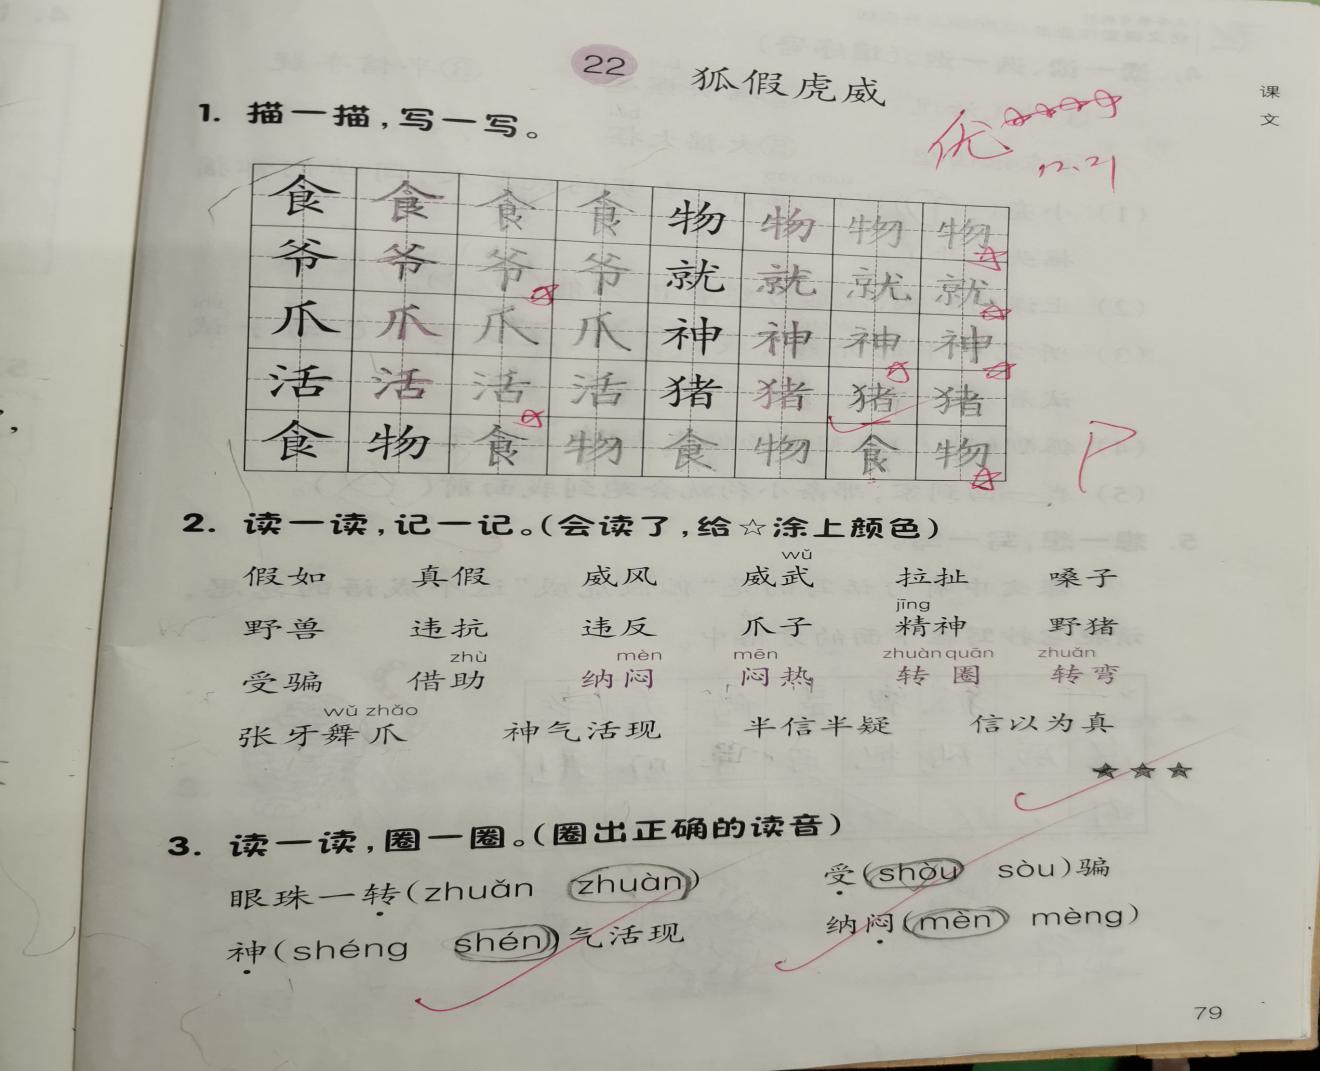 课文
22 狐假虎威
优☆☆☆☆
12.21
1. 描一描，写一写。
食 食 食 食 物 物 物 物
爷 爷 爷 爷 就 就 就 就
爪 爪 爪 爪 神 神 神 神
活 活 活 活 猪 猪 猪 猪
食 物 食 物 食 物 食 物
2. 读一读，记一记。（会读了，给☆涂上颜色）
wǔ
假如 真假 威风 威武 拉扯 嗓子
jīng
野兽 违抗 违反 爪子 精神 野猪
zhù mèn mēn zhuàn quān zhuǎn
受骗 借助 纳闷 闷热 转圈 转弯
wǔ zhǎo
张牙舞爪 神气活现 半信半疑 信以为真
★★★
3. 读一读，圈一圈。（圈出正确的读音）
眼珠一转（zhuǎn zhuàn） 受（shòu sòu）骗
神（shéng shén）气活现 纳闷（mèn mèng）
79